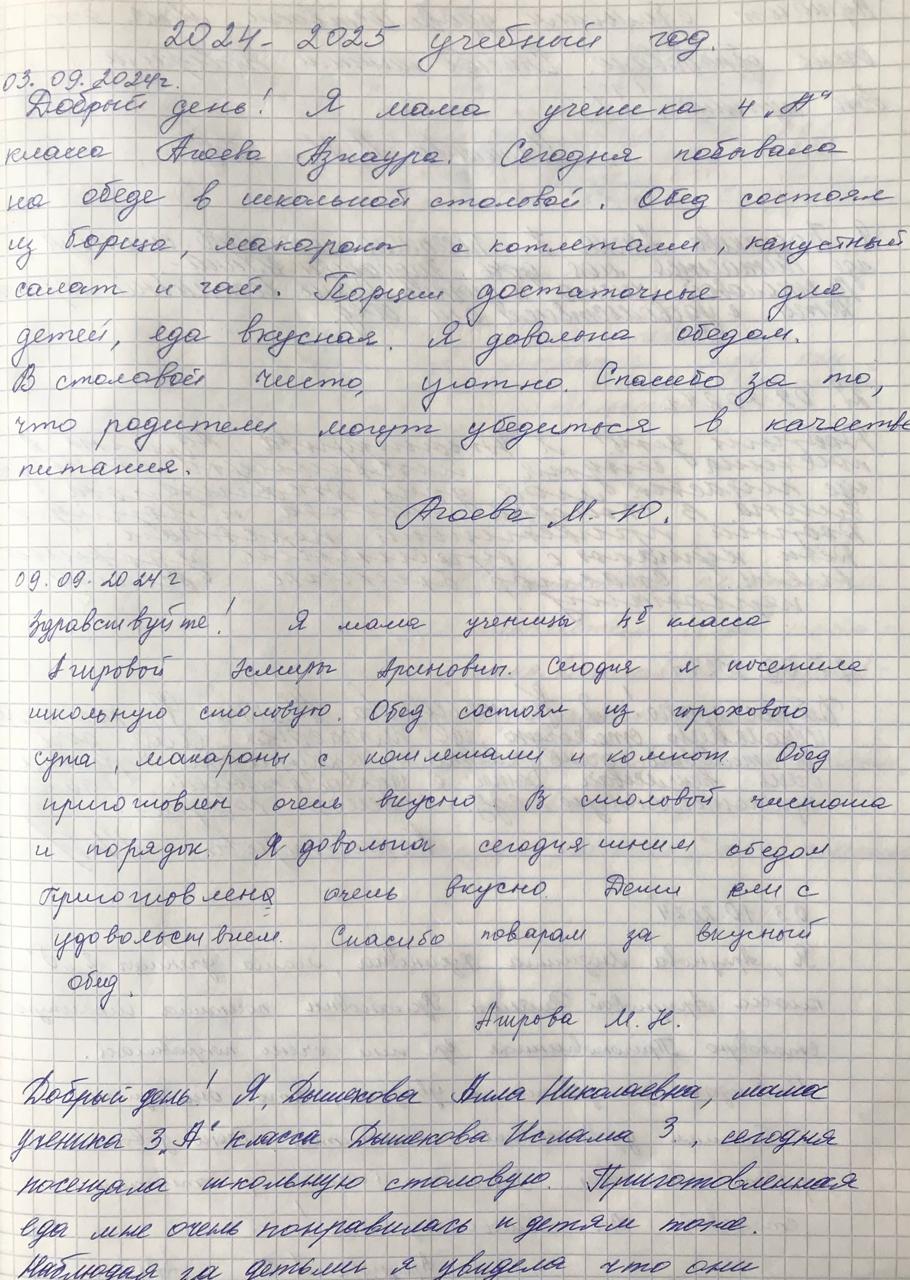 2024-2025 учебный год.
03.09.2024г.
Добрый день! Я мама ученика 4 „А"
класса Агоева Азнаура. Сегодня побывала
на обеде в школьной столовой. Обед состоял
из борща, макарон с котлетами, капустный
салат и чай. Порции достаточные для
детей, еда вкусная. Я довольна обедом.
В столовой чисто, уютно. Спасибо за то,
что родители могут убедиться в качестве
питания.
Агоева М. Ю.
09.09.2024 г
Здравствуйте! Я мама ученицы 4Б класса
Агировой Эсмиры Ариновны. Сегодня я посетила
школьную столовую. Обед состоял из горохового
супа, макароны с котлетами и компот. Обед
приготовлен очень вкусно. В столовой чистота
и порядок. Я довольна сегодняшним обедом
Приготовлена очень вкусно. Дети ели с
удовольствием. Спасибо поварам за вкусный
обед.
Агирова М. Н.
Добрый день! Я, Дышекова Алла Николаевна, мама
ученика 3„А" класса Дышекова Ислама З., сегодня
посещала школьную столовую. Приготовленная
еда мне очень понравилась и детям тоже.
Наблюдая за детьми я увидела что они